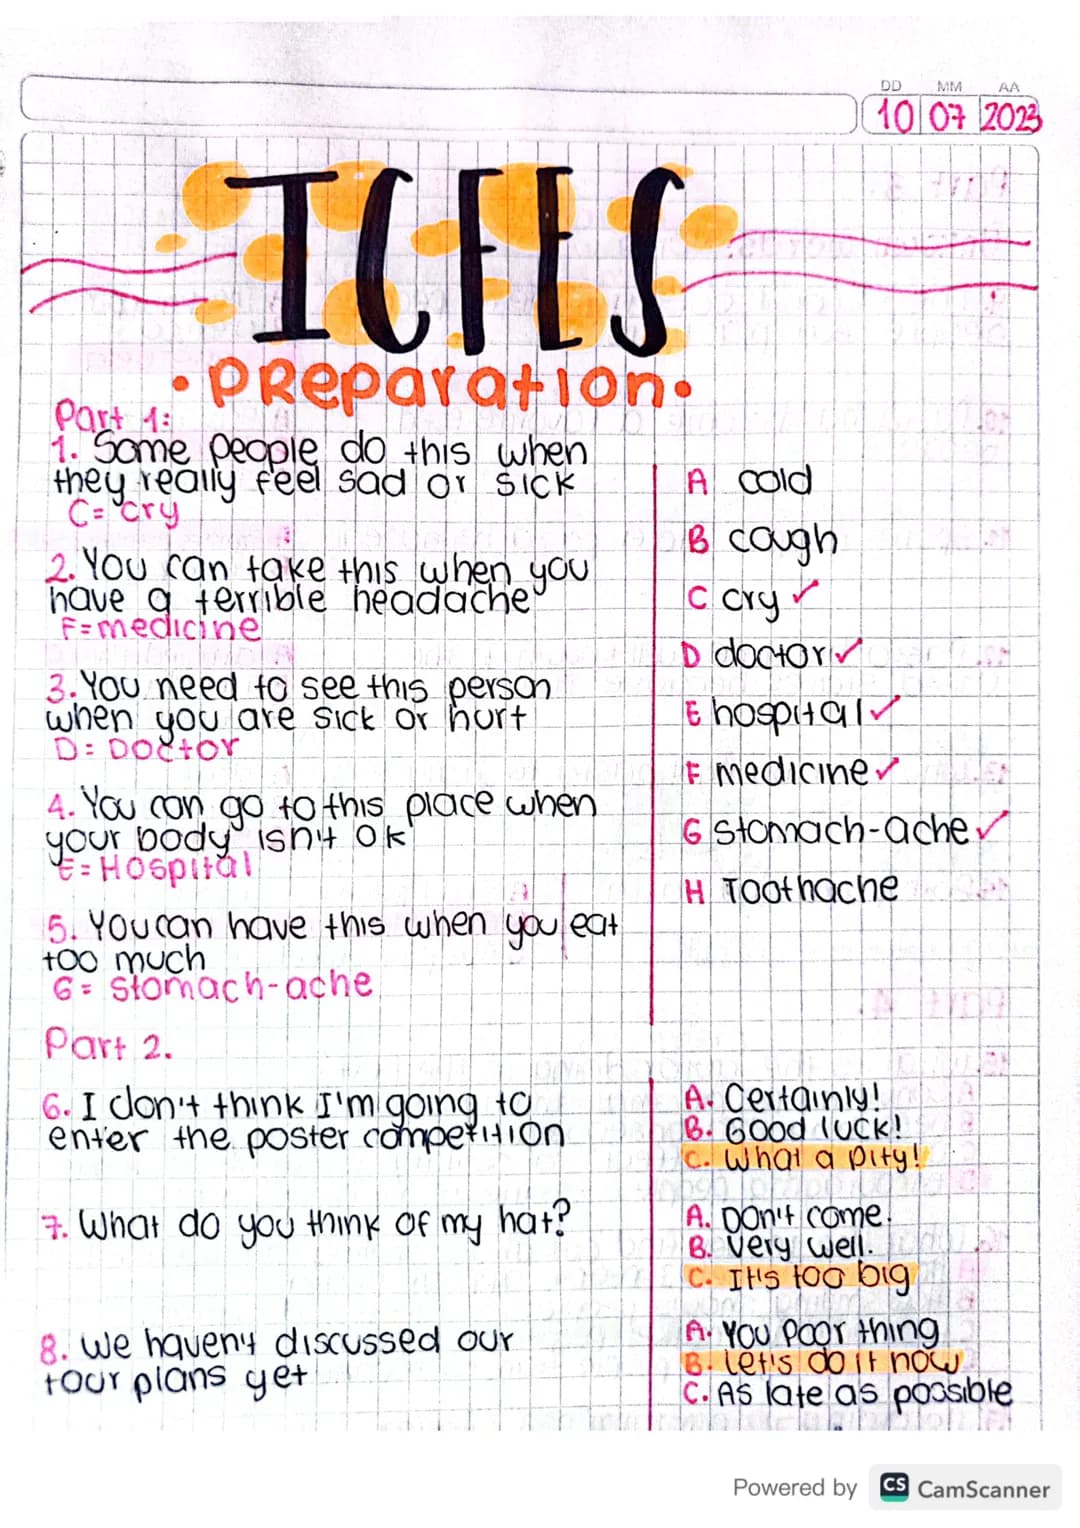 DD MM AA
10 07 2023
ICFES
• Preparation •
Part 1:
1. Some people do this when
they really feel sad or sick
C= cry
2. You can take this when you
have a terrible headache
F= medicine
3. You need to see this person
when you are sick or hurt
D: Doctor
4. You can go to this place when
your body isn't ok
E= Hospital
5. You can have this when you eat
too much
G= stomach-ache
A cold
B cough
C cry ✓
D doctor ✓
E hospital ✓
F medicine ✓
G stomach-ache ✓
H Toothache
Part 2.
6. I don't think I'm going to
enter the poster competition
A. Certainly!
B. Good luck!
C. What a pity!
7. What do you think of my hat?
A. Don't come.
B. Very well.
C. It's too big
8. We haven't discussed our
tour plans yet
A. You poor thing
B. Let's do it now
C. As late as possible
Powered by CS CamScanner